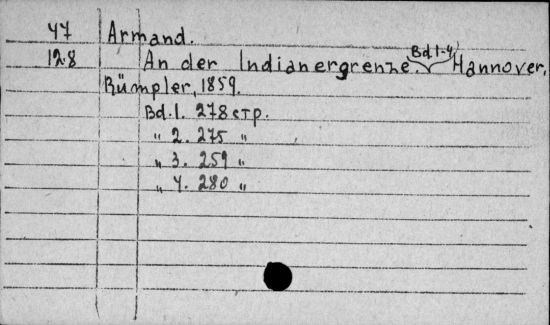 47 Armand.
128 An der Indianergrenze. Bd 1-4. Hannover,
Rümpler, 1859.
Bd. 1. 278 стр.
" 2. 275 "
" 3. 259 "
" 4. 280 "